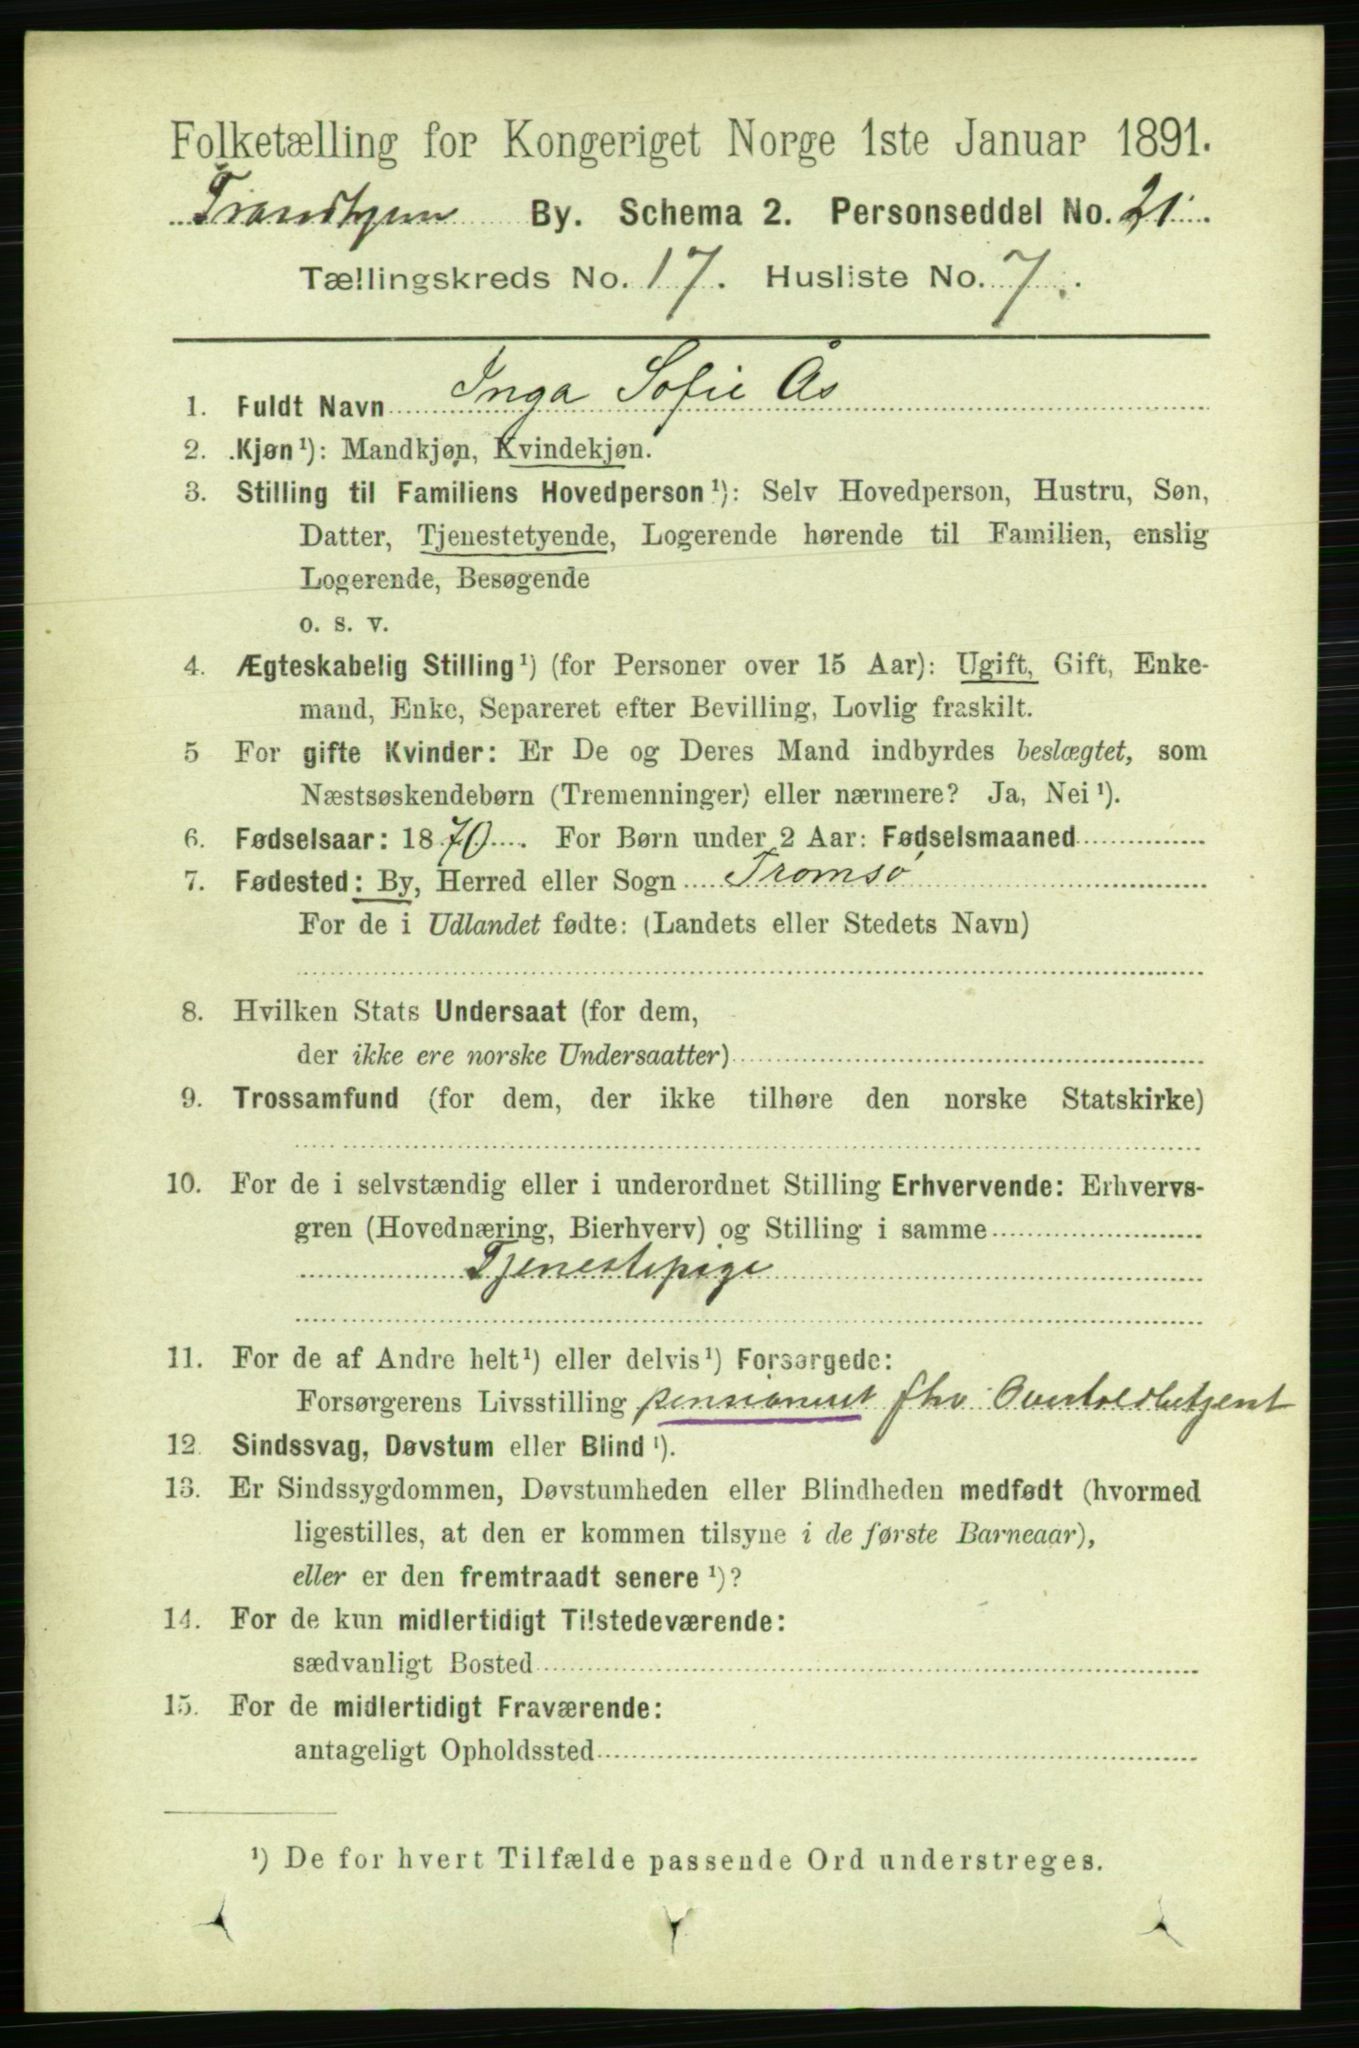 Folketælling for Kongeriget Norge 1ste Januar 1891.
Trondhjem By. Schema 2. Personseddel No. 21.
Tællingskreds No. 17. Husliste No. 7.
1. Fuldt Navn Inga Sofie Ås
2. Kjøn¹): Mandkjøn, Kvindekjøn.
3. Stilling til Familiens Hovedperson¹): Selv Hovedperson, Hustru, Søn,
Datter, Tjenestetyende, Logerende hørende til Familien, enslig
Logerende, Besøgende
o. s. v.
4. Ægteskabelig Stilling¹) (for Personer over 15 Aar): Ugift, Gift, Enke-
mand, Enke, Separeret efter Bevilling, Lovlig fraskilt.
5 For gifte Kvinder: Er De og Deres Mand indbyrdes beslægtet, som
Næstsøskendebørn (Tremenninger) eller nærmere? Ja, Nei¹).
6. Fødselsaar: 1870. For Børn under 2 Aar: Fødselsmaaned
7. Fødested: By, Herred eller Sogn Tromsø
For de i Udlandet fødte: (Landets eller Stedets Navn)
8. Hvilken Stats Undersaat (for dem,
der ikke ere norske Undersaatter)
9. Trossamfund (for dem, der ikke tilhøre den norske Statskirke)
10. For de i selvstændig eller i underordnet Stilling Erhvervende: Erhvervs-
gren (Hovednæring, Bierhverv) og Stilling i samme
Tjenestepige
11. For de af Andre helt¹) eller delvis¹) Forsørgede:
Forsørgerens Livsstilling pensioneret fhv Overtoldbetjent
12. Sindssvag, Døvstum eller Blind¹).
13. Er Sindssygdommen, Døvstumheden eller Blindheden medfødt (hvormed
ligestilles, at den er kommen tilsyne i de første Barneaar),
eller er den fremtraadt senere¹)?
14. For de kun midlertidigt Tilstedeværende:
sædvanligt Bosted
15. For de midlertidigt Fraværende:
antageligt Opholdssted
¹) De for hvert Tilfælde passende Ord understreges.